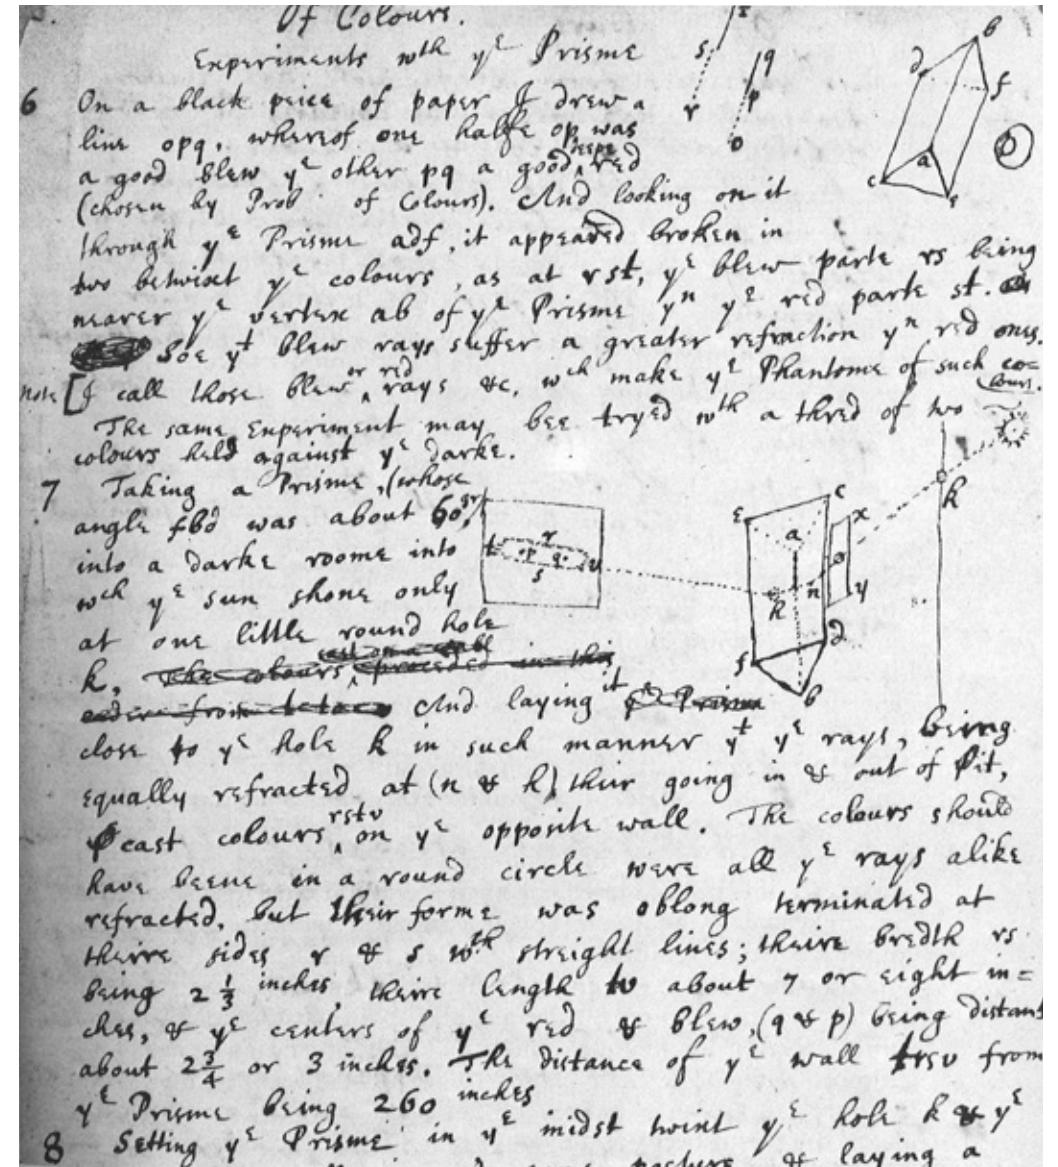 Of Colours.
Experiments wth ye Prisme
6 On a black peice of paper I drew a
line opq, whereof one halfe op was
a good blew ye other pq a good deepe red
(chosen by Prob of Colours). And looking on it
through ye Prisme adf, it appeared broken in
two betwixt ye colours, as at rst, ye blew parte rs being
nearer ye vertex ab of ye Prisme yn ye red parte st.
Soe yt blew rays suffer a greater refraction yn red ones.
note [I call those blew or red rays &c, wch make ye Phantome of such co=
lours.
The same Experiment may bee tryed wth a thred of two
colours held against ye darke.
7 Taking a Prisme, (whose
angle fbd was about 60gr)
into a darke roome into
wch ye sun shone only
at one little round hole
k, The colours cast on a
order from And laying it ye Prisme
close to ye hole k in such manner yt ye rays, being
equally refracted at (n & h) their going in & out of it,
cast colours rstv on ye opposite wall. The colours should
have beene in a round circle were all ye rays alike
refracted, but their forme was oblong terminated at
theire sides r & s wth streight lines; theire bredth rs
being 2 1/3 inches, theire length tv about 7 or eight in=
ches, & ye centers of ye red & blew, (q & p) being distant
about 2 3/4 or 3 inches. The distance of ye wall trsv from
ye Prisme being 260 inches
8 Setting ye Prisme in ye midst twixt ye hole k & ye
& laying a
s
r
q
p
o
d
b
f
a
c
e
t
r
p
q
s
v
E
c
a
x
o
y
n
h
k
f
d
b